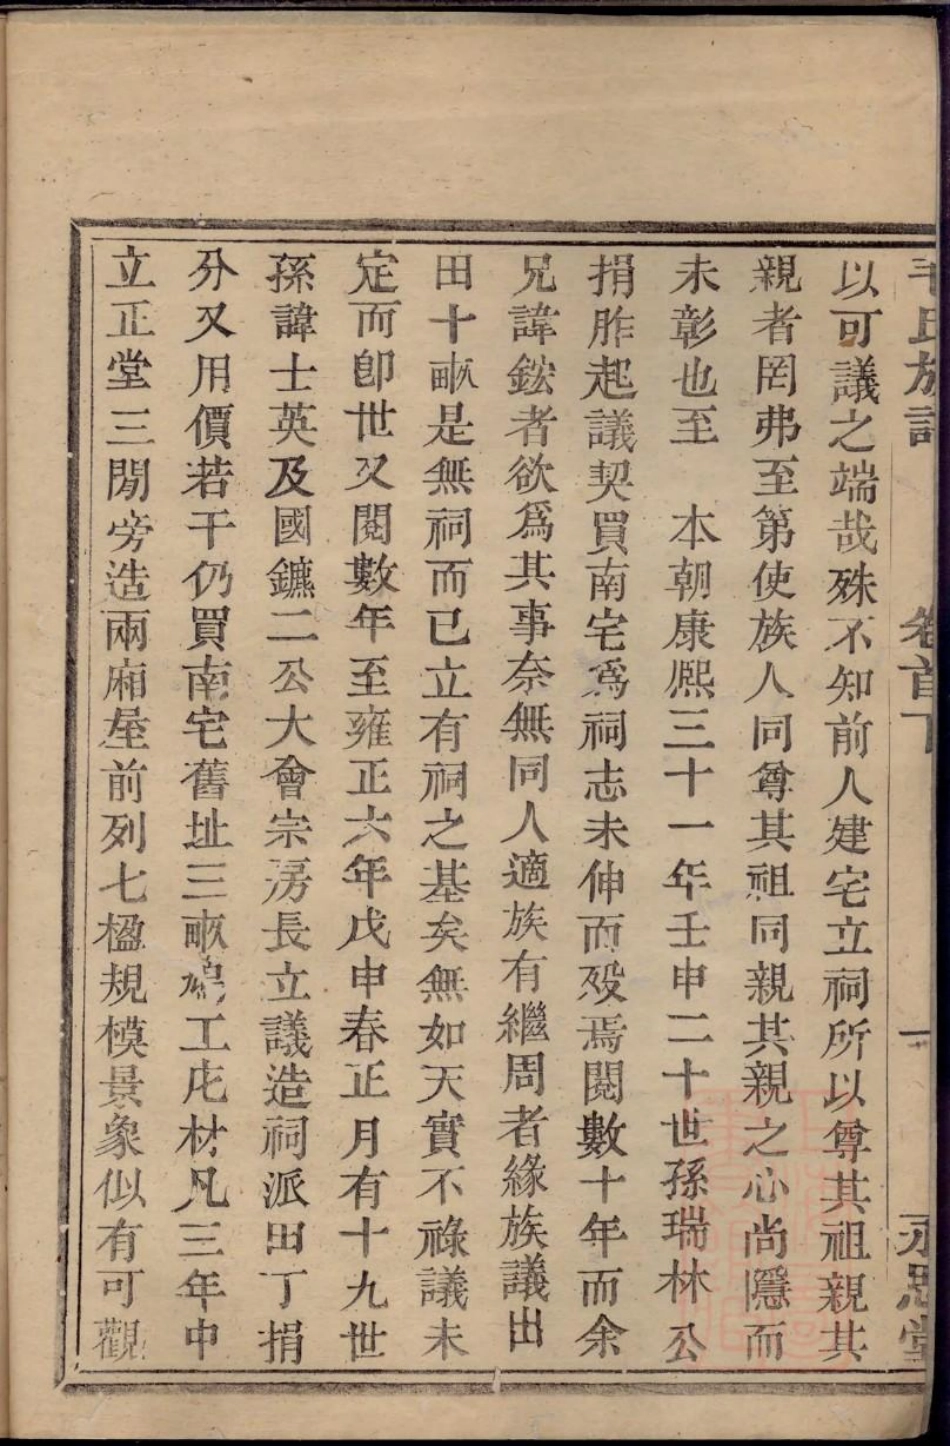 毛氏族譜 卷首下 一 永思堂
以可議之端哉殊不知前人建宅立祠所以尊其祖親其
親者罔弗至第使族人同尊其祖同親其親之心尚隱而
未彰也至 本朝康熙三十一年壬申二十世孫瑞林公
捐胙起議契買南宅爲祠志未伸而歿焉閱數十年而余
兄諱鋐者欲爲其事奈無同人適族有繼周者緣族議出
田十畝是無祠而已立有祠之基矣無如天實不祿議未
定而卽世又閱數年至雍正六年戊申春正月有十九世
孫諱士英及國鑣二公大會宗房長立議造祠派田丁捐
分又用價若干仍買南宅舊址三畝鳩工庀材凡三年中
立正堂三間旁造兩廂屋前列七楹規模景象似有可觀